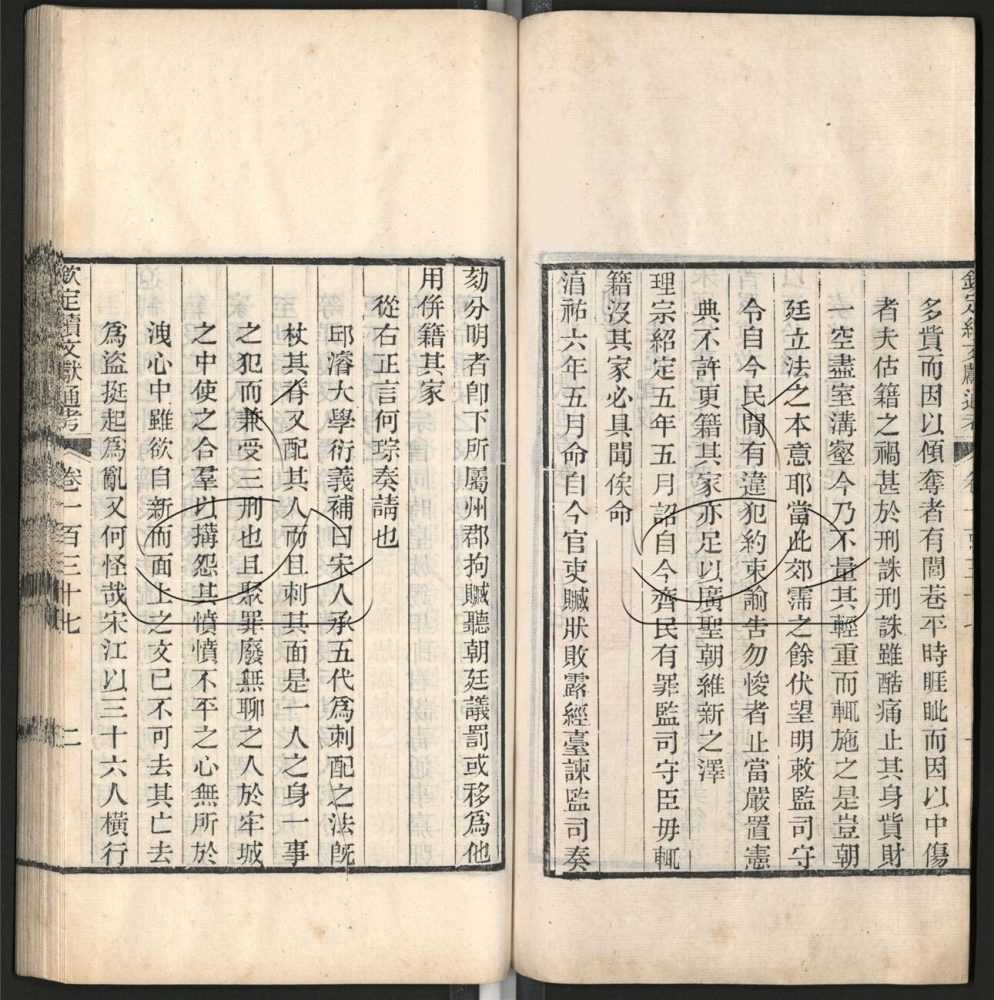 多貲而因以傾奪者有閭巷平時睚眦而因以中傷
者夫估籍之禍甚於刑誅刑誅雖酷痛止其身貲財
一空盡室溝壑今乃不量其輕重而輒施之是豈朝
廷立法之本意耶當此郊霈之餘伏望明敕監司守
令自今民閒有違犯約束諭告勿悛者止當嚴置憲
典不許更籍其家亦足以廣聖朝維新之澤
理宗紹定五年五月詔自今齊民有罪監司守臣毋輒
籍沒其家必具聞俟命
淯祐六年五月命自今官吏贓狀敗露經臺諫監司奏
劾分明者卽下所屬州郡拘贓聽朝廷議罰或移爲他
用併籍其家
從右正言何琮奏請也
邱濬大學衍義補曰宋人承五代爲刺配之法旣
杖其脊又配其人而且刺其面是一人之身一事
之犯而兼受三刑也且聚罪廢無聊之人於牢城
之中使之合羣以搆怨其憤憤不平之心無所於
洩心中雖欲自新而面上之文已不可去其亡去
爲盜挺起爲亂又何怪哉宋江以三十六人橫行
欽定續文獻通考 卷一百三十七 二